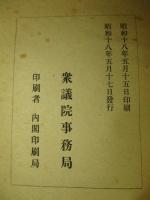 昭和十八年五月十五日印刷
昭和十八年五月十七日發行
衆議院事務局
印刷者 內閣印刷局